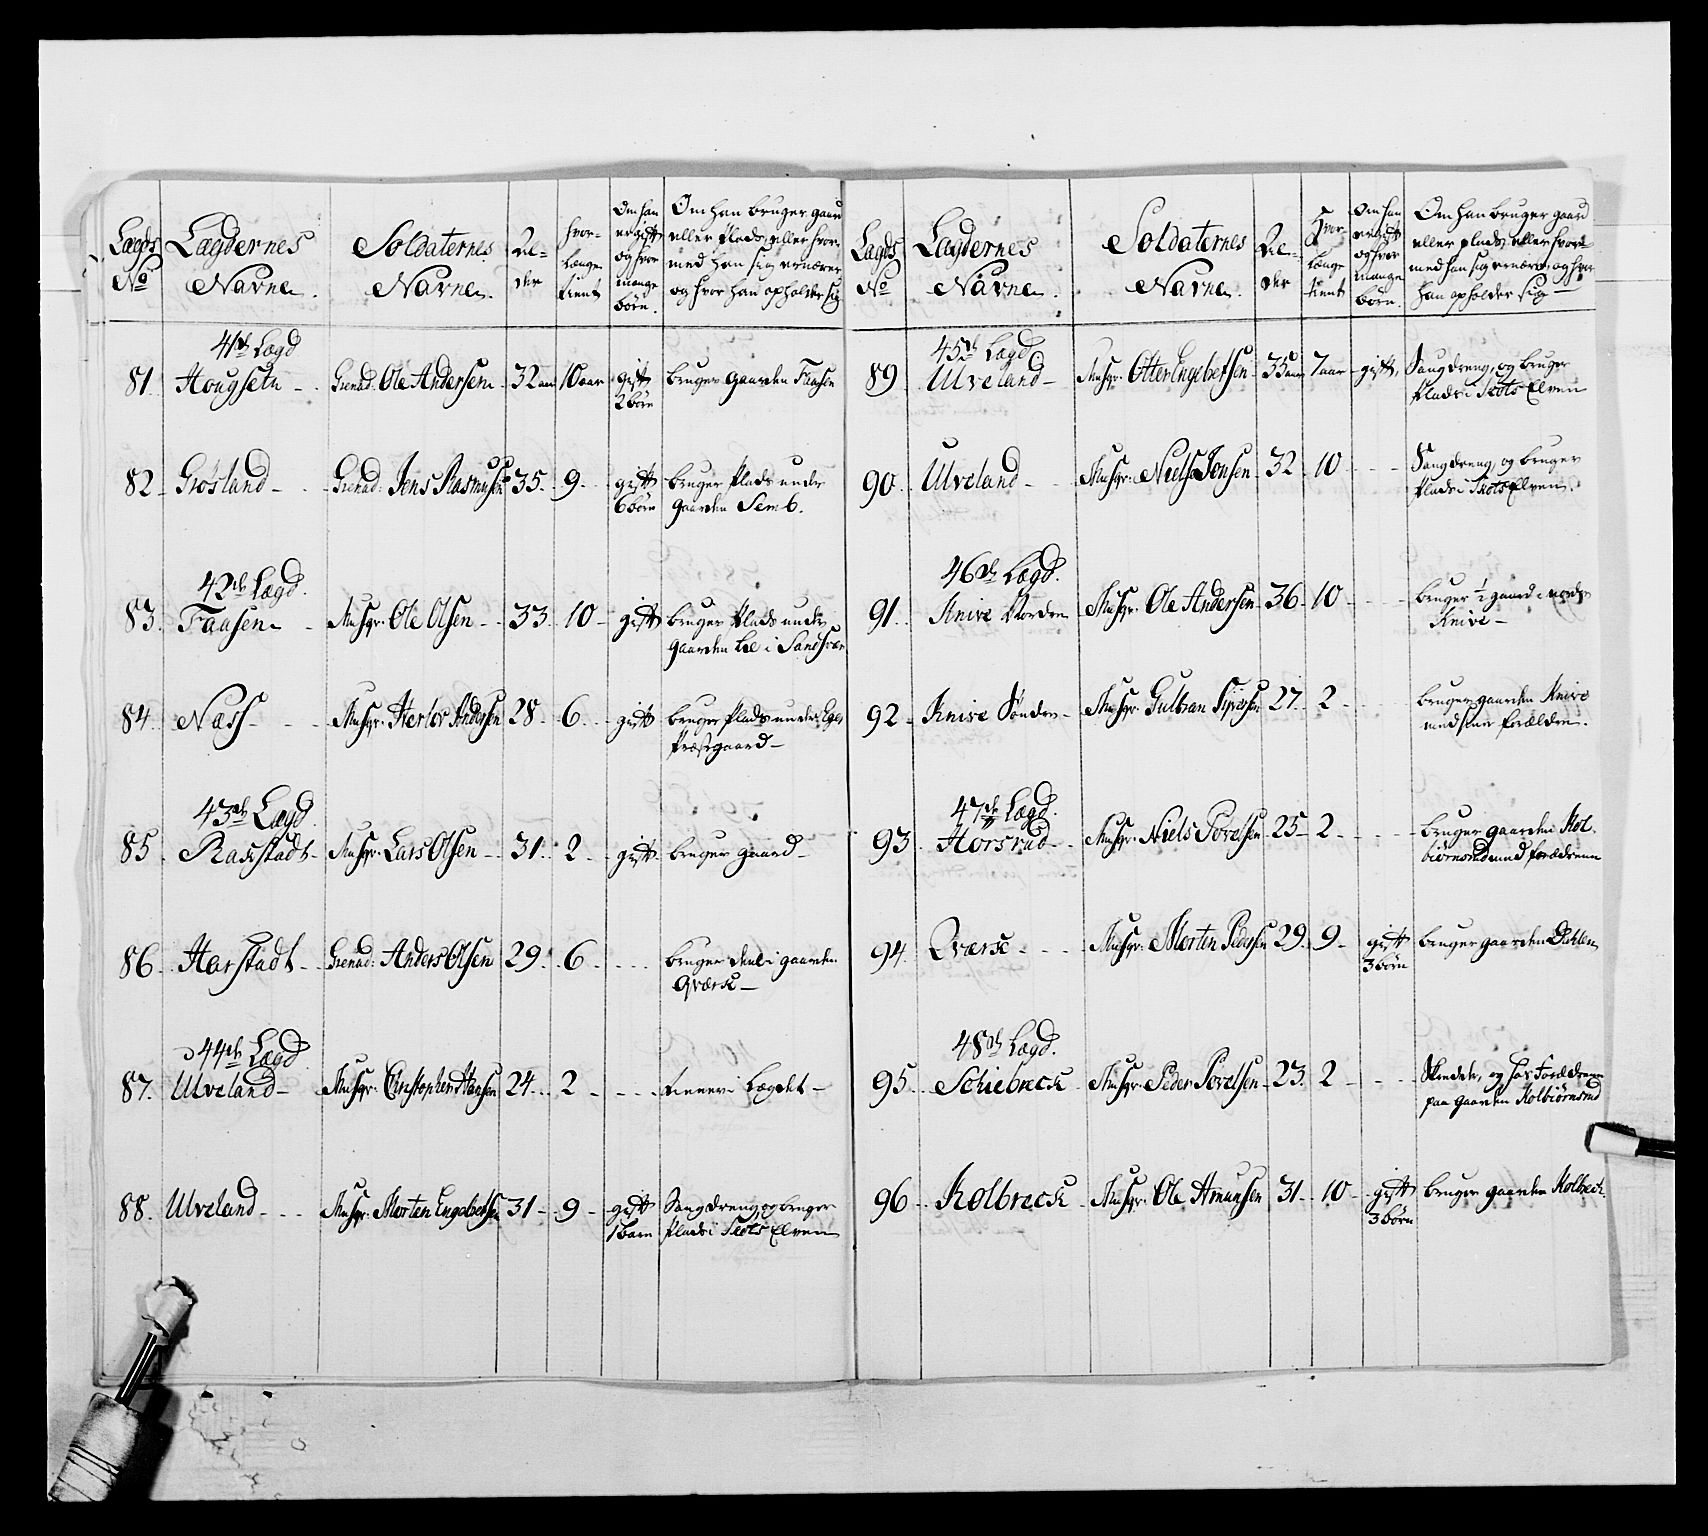 Lægds No | Lægdernes Navne. | Soldaternes Navne. | Al-der | hvor-længe tient | Om han er gift og hvor mange børn. | Om han bruger gaard eller Plads, eller hvor med han sig ernærer og hvor han opholder sig
41de Lægd
81 Hougsetn - Grenad: Ole Andersen 32 aar 10 aar gift 2 børn bruger Gaarden Faasen
82 Grøsland - Grenad: Jens Rasmusen 35 9 gift 6 børn bruger Plads under Gaarden Semb.
42de Lægd.
83. Faasen - Musqr: Ole Olsen 33. 10 gift bruger Plads under Gaarden Lie i Sandsvær
84. Næss - Musqr: Herlov Andersen 28 6 gift bruger Plads under Eger Præstgaard
43de Lægd.
85. Raastadt - Musqr: Lars Olsen 31. 2 gift bruger gaard
86. Harstadt - Grenad: Anders Olsen 29. 6 bruger deel i gaarden Qværk
44de Lægd
87. Ulveland - Musqr: Christopher Hansen 24 2 tiener i Lægdet
88. Ulveland - Musqr: Morten Engebretsen 31 9 gift 1 barn Sangdreng, og bruger Plads i Skots Elven
Lægds No | Lægdernes Navne. | Soldaternes Navne. | Al-der | Hvor længe tient | Om han er gift og hvor mange børn. | Om han bruger gaard eller plads, eller hvor med han sig ernærer, og hvor han opholder sig
45de Lægd
89 Ulveland - Musqr: Otter Engebretsen 35 aar 7 aar gift, Sangdreng, og bruger Plads i Skots Elven
90. Ulveland - Musqr: Niels Jensen 32 10 Sangdreng, og bruger Plads i Skots Elven.
46de Lægd.
91. Knive Nordre Musqr: Ole Andersen 36 10 bruger 1/2 gaard i nordre Knive
92. Knive Søndre - Musqr: Gulbran Syversen 27. 2 bruger gaarden Knive med sine forældre.
47de Lægd.
93. Horsrud - Musqr: Niels Torelsen 25 2 bruger gaarden Kolbiørnsrud med forældrene
94. Qværk - Musqr: Morten Pedersen 29. 9 gift 3 børn bruger gaarden Dahlen
48de Lægd.
95. Schiebreck Musqr: Peder Torelsen 23. 2 og hos Forældrene paa gaarden Kolbiørnsrud
96. Kolbreck Musqr: Ole Amunsen 31. 10 gift 3 børn bruger gaarden Kolbreck